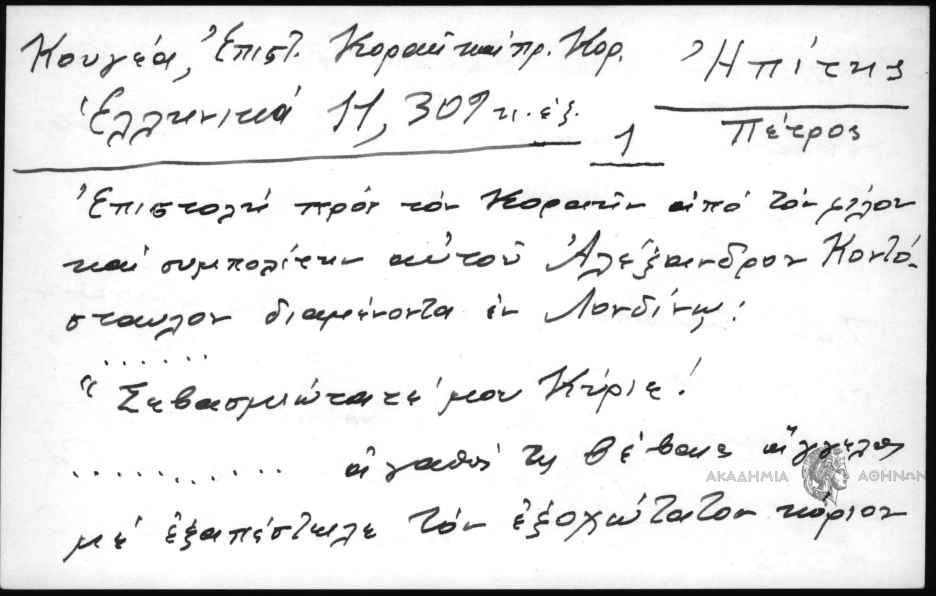 Κουγέα, Ἐπιστ. Κοραῆ καὶ πρ. Κορ.
Ἑλληνικά 11, 309 κ. ἑξ.
1
Ἠπίτης
Πέτρος
Ἐπιστολὴ πρὸς τὸν Κοραῆν ἀπὸ τὸν φίλον
καὶ συμπολίτην αὐτοῦ Ἀλέξανδρον Κοντό-
σταυλον διαμένοντα ἐν Λονδίνῳ:
. . . . . .
"Σεβασμιώτατέ μου Κύριε!
. . . . . . . . . . . ἀγαθός τις βέβαια ἄγγελος
μὲ ἐξαπέστειλε τὸν ἐξοχώτατον κύριον
ΑΚΑΔΗΜΙΑ ΑΘΗΝΩΝ